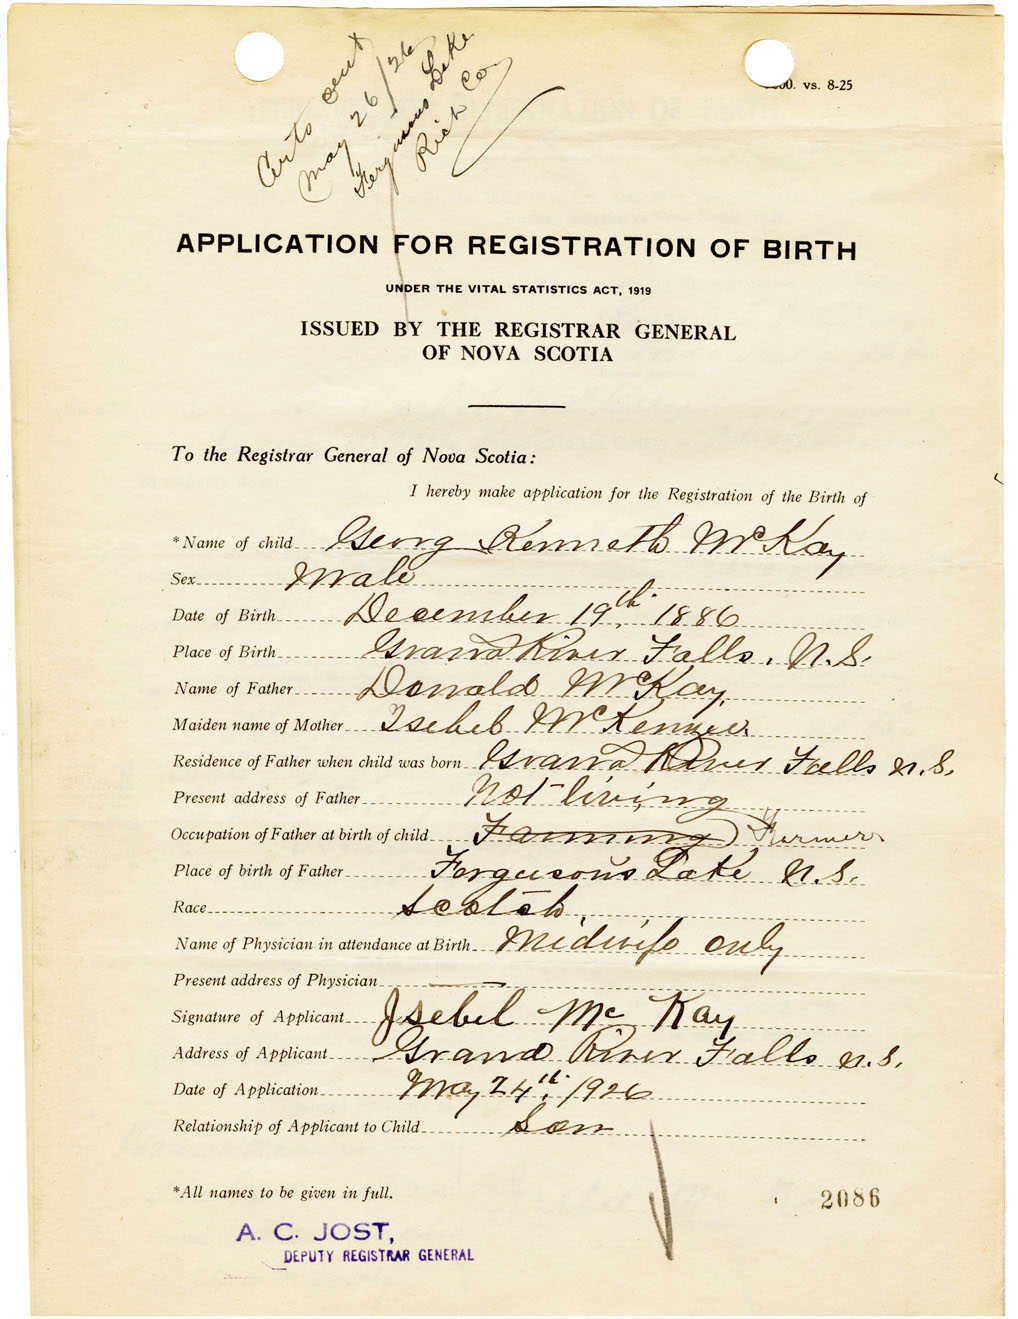 Certs sent
May 26/26
Fergusons Lake
Rich Co
00. vs. 8-25
APPLICATION FOR REGISTRATION OF BIRTH
UNDER THE VITAL STATISTICS ACT, 1919
ISSUED BY THE REGISTRAR GENERAL
OF NOVA SCOTIA
To the Registrar General of Nova Scotia:
I hereby make application for the Registration of the Birth of
*Name of child Georg Kenneth McKay
Sex Male
Date of Birth December 19th. 1886
Place of Birth Grand River Falls, N.S.
Name of Father Donald McKay.
Maiden name of Mother Isebel McKenzier
Residence of Father when child was born Grand River Falls N.S.
Present address of Father Not living
Occupation of Father at birth of child Farming Farmer
Place of birth of Father Fergusons Lake N.S.
Race Scotch.
Name of Physician in attendance at Birth Midwife only
Present address of Physician —
Signature of Applicant Isebel Mc Kay
Address of Applicant Grand River Falls N.S.
Date of Application May 24th. 1926
Relationship of Applicant to Child Son
*All names to be given in full.
2086
A. C. JOST,
DEPUTY REGISTRAR GENERAL